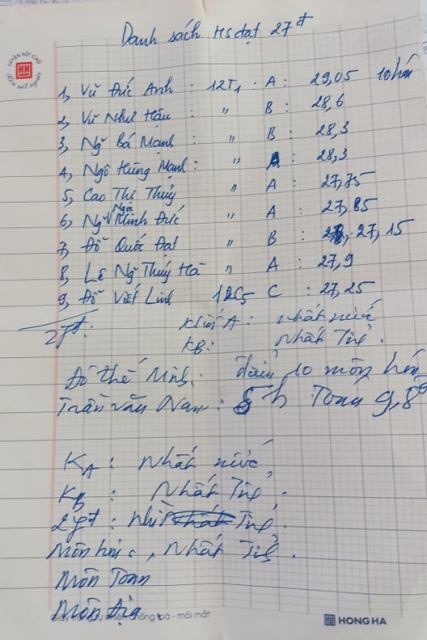 Danh sách HS đạt 27đ
1, Vũ Đức Anh : 12T1 A : 29,05
2, Vũ Như Hậu : " B : 28,6
3, Ng~ Bá Mạnh " B : 28,3
4, Ngô Hùng Mạnh : " A : 28,3
5, Cao Thị Thúy " A : 27,75
6, Ng~ Minh Đức " A : 27,85
7, Đỗ Quốc Đạt " B : 27,15
8, Lê Ng~ Thúy Hà " A : 27,9
9, Đỗ Viết Linh 12C5 C : 27,25
Khối A : nhất nước
KB : Nhất Tỉnh.
Đỗ thế Minh :
Trần văn Nam : Toán 9,8
KA : Nhất nước,
KB : Nhất Tỉnh.
27đ : Nhì Tỉnh.
Môn hóa : Nhất Tỉnh.
Môn Toán
Môn Địa
HONG HA